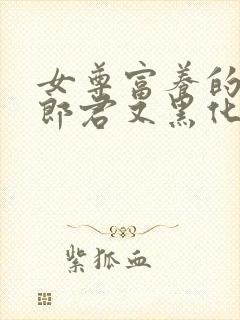 女尊富养的
郎君又黑化
紫狐血